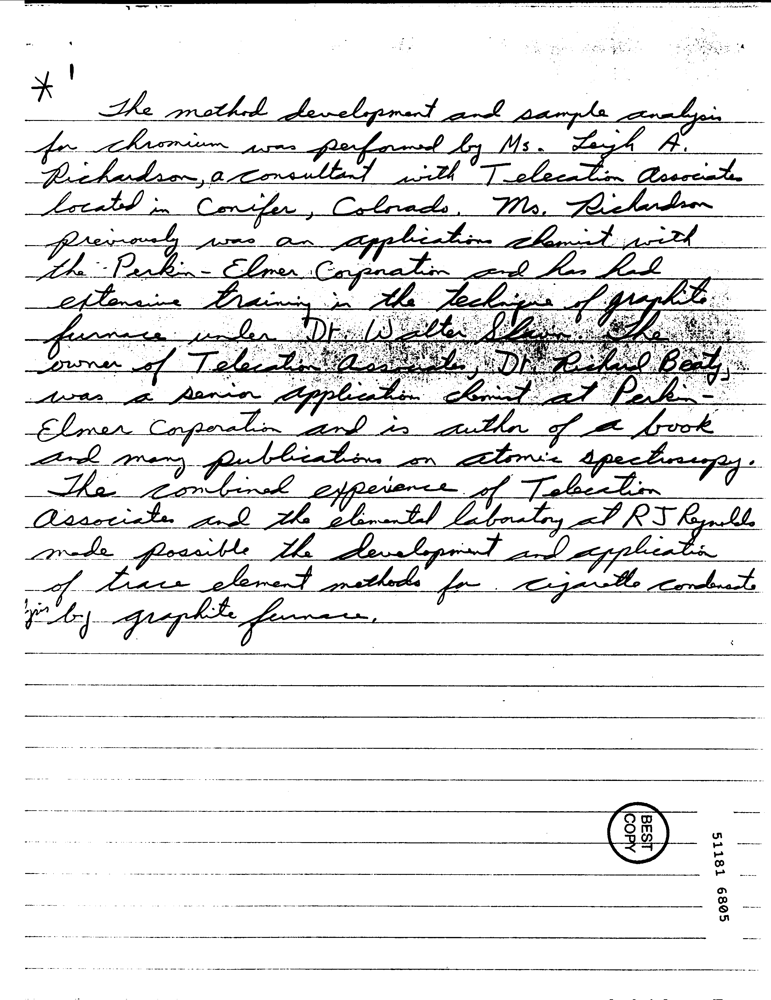 * 1
The method development and sample analysis
for chromium was performed by Ms. Leigh A.
Richardson, a consultant with Telecation Associates
located in Conifer, Colorado. Ms. Richardson
previously was an applications chemist with
the Perkin-Elmer Corporation and has had
extensive training in the technique of graphite
furnace under Dr. Walter Slavin. The
owner of Telecation Associates, Dr. Richard Beaty,
was a senior application chemist at Perkin-
Elmer Corporation and is author of a book
and many publications on atomic spectroscopy.
The combined experience of Telecation
Associates and the elemental laboratory at RJ Reynolds
made possible the development and application
of trace element methods for cigarette condensate
by graphite furnace.
BEST
COPY
51181 6805